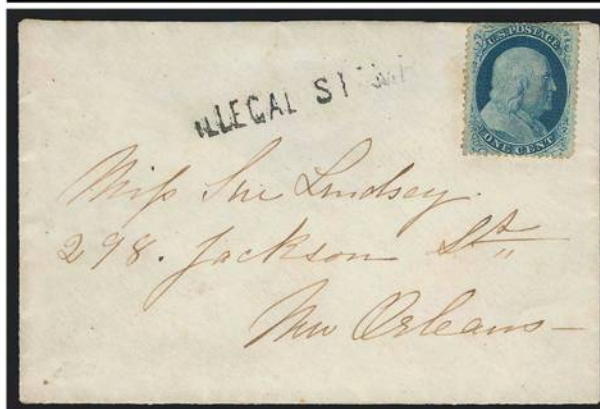 U.S. POSTAGE
ONE CENT
ILLEGAL
Miss Sue Lindsey.
298. Jackson St,,
New Orleans